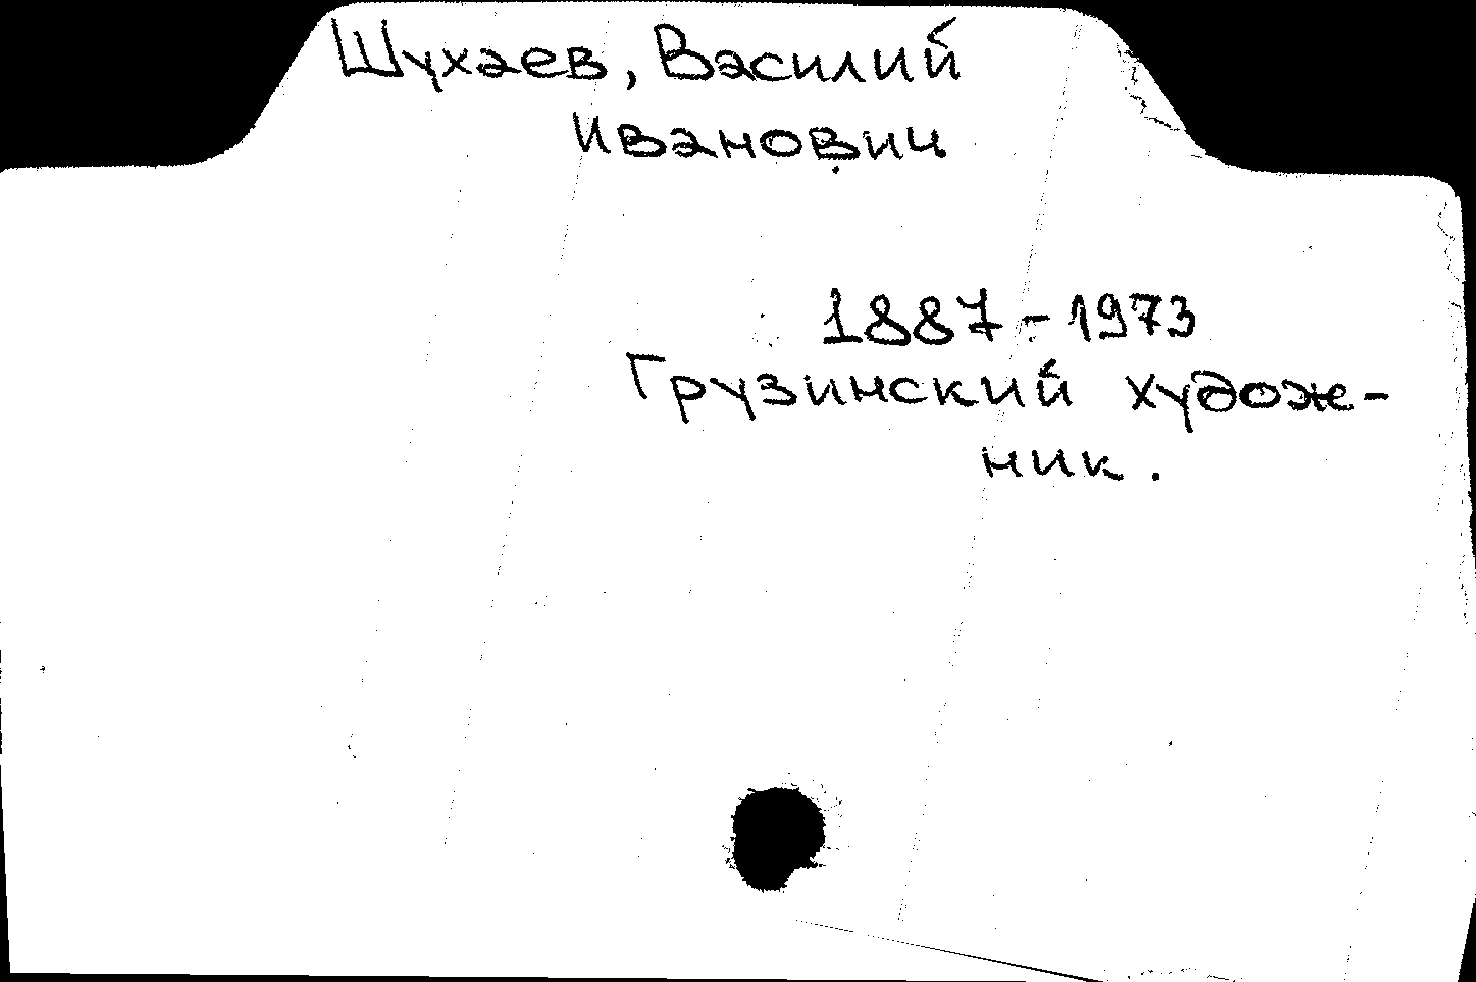 Шухаев, Василий
Иванович
1887-1973
Грузинский худож-
ник.